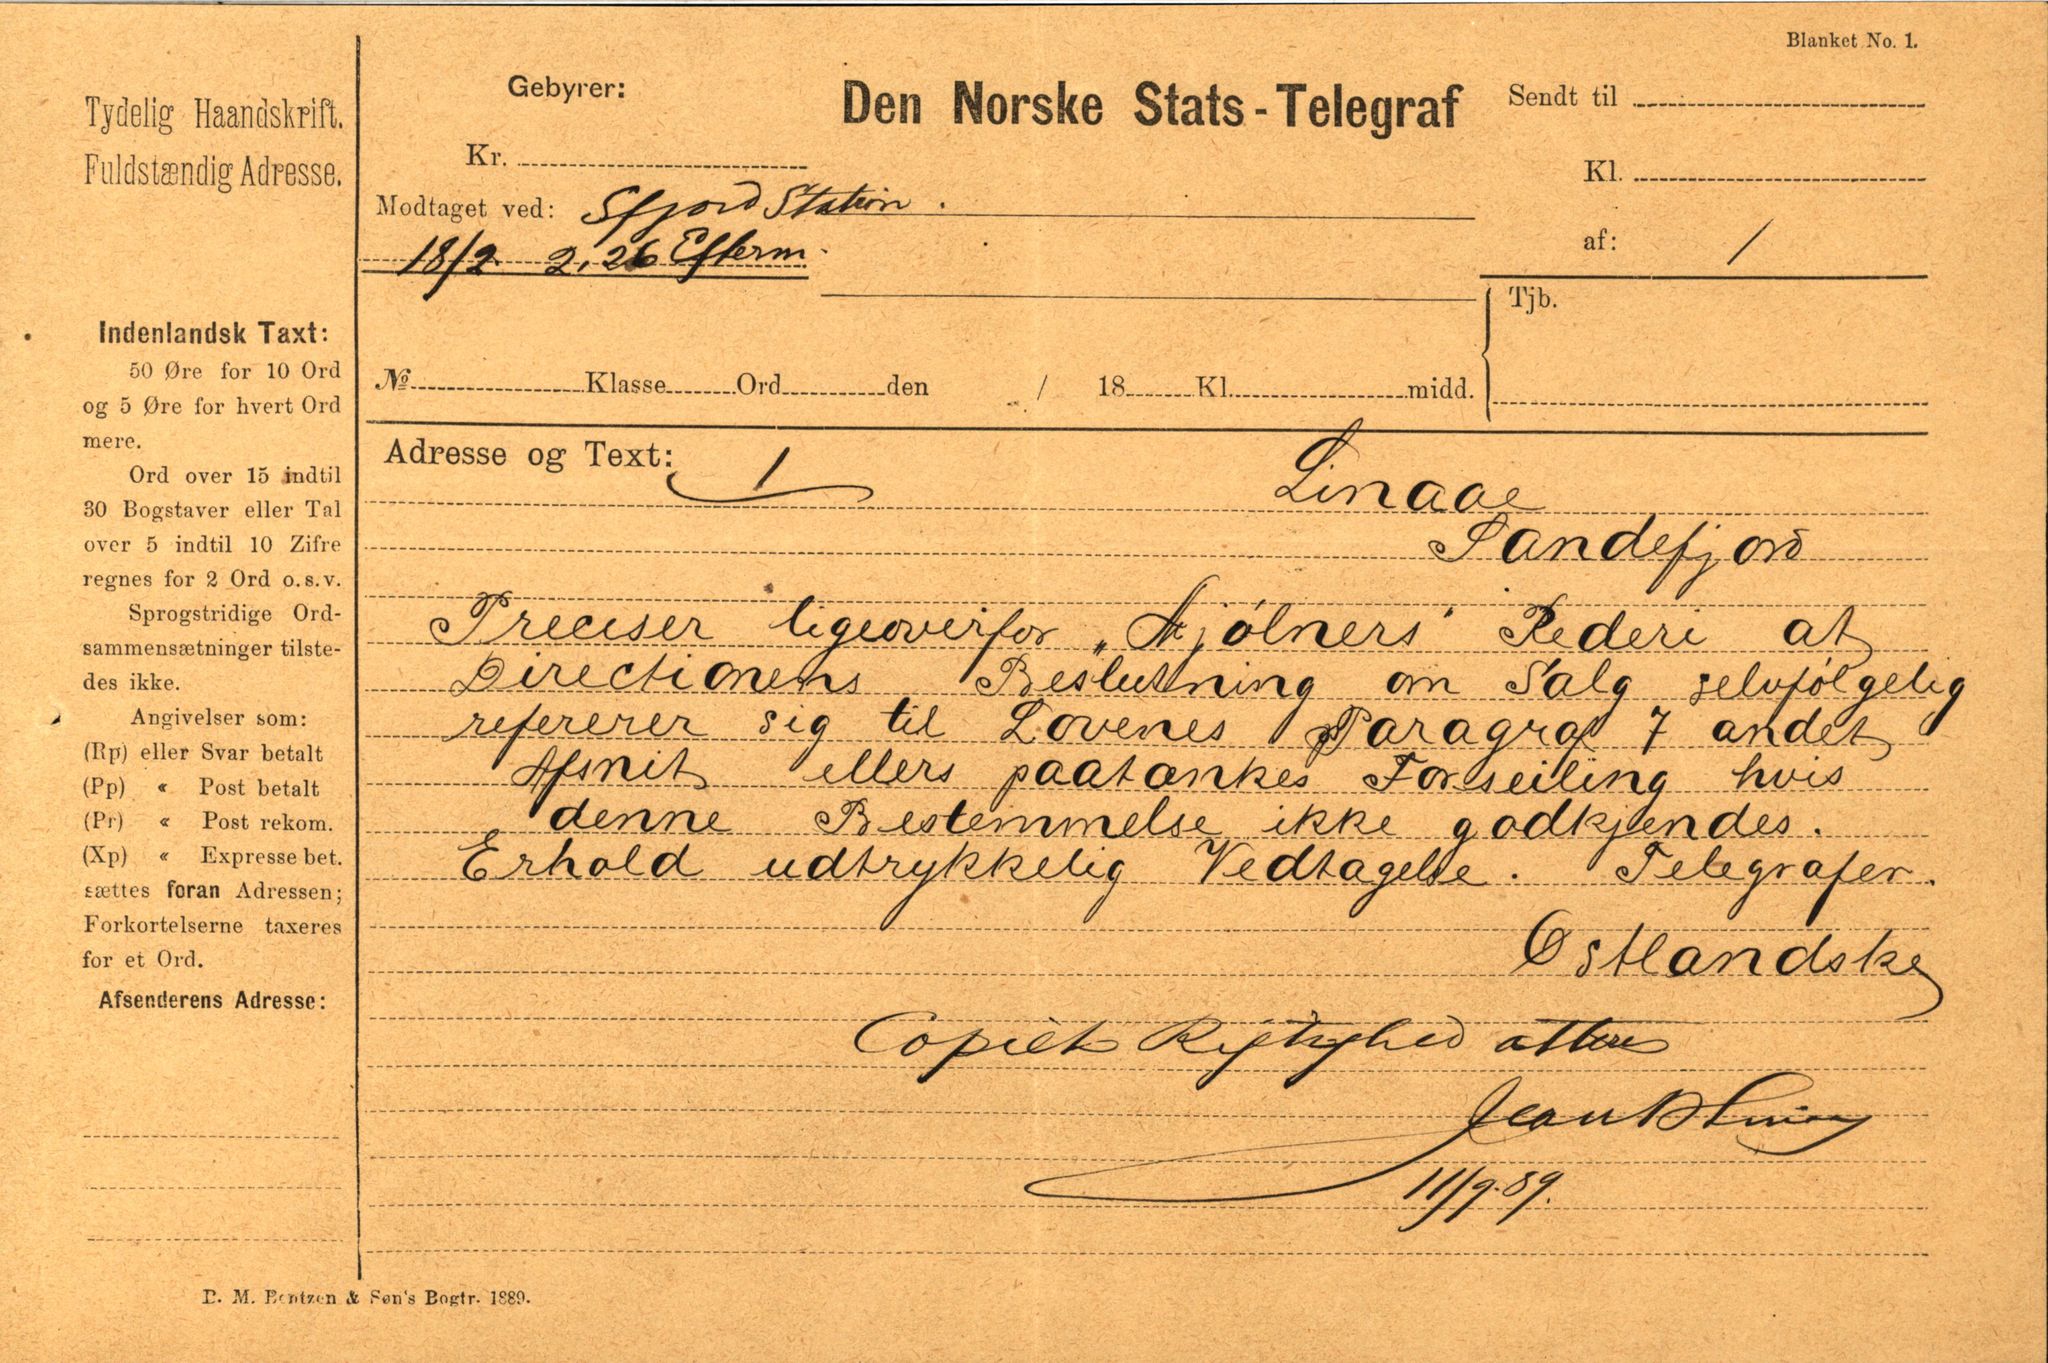 Blanket No. 1.
Tydelig Haandskrift.
Fuldstændig Adresse.
Gebyrer:
Kr.
Den Norske Stats-Telegraf
Sendt til
Kl.
af: /
Modtaget ved: Sfjord Station.
18/2 2,26 Efterm.
Tjb.
No Klasse Ord den / 18 Kl. midd.
Indenlandsk Taxt:
50 Øre for 10 Ord
og 5 Øre for hvert Ord
mere.
Ord over 15 indtil
30 Bogstaver eller Tal
over 5 indtil 10 Zifre
regnes for 2 Ord o.s.v.
Sprogstridige Ord-
sammensætninger tilste-
des ikke.
Angivelser som:
(Rp) eller Svar betalt
(Pp) « Post betalt
(Pr) « Post rekom.
(Xp) « Expresse bet.
sættes foran Adressen;
Forkortelserne taxeres
for et Ord.
Afsenderens Adresse:
Adresse og Text: 1
Linaae
Sandefjord
Preciser ligeoverfor „Mjølners" Rederi at
Directionens Beslutning om Salg selvfølgelig
refererer sig til Lovenes Paragraf 7 andet
Afsnit ellers paatænkes Forseiling hvis
denne Bestemmelse ikke godkjendes.
Erhold udtrykkelig Vedtagelse. Telegrafer.
Østlandske
Copiets Rigtighed attere
11/9.89.
B. M. Bentzen & Søn's Bogtr. 1889.